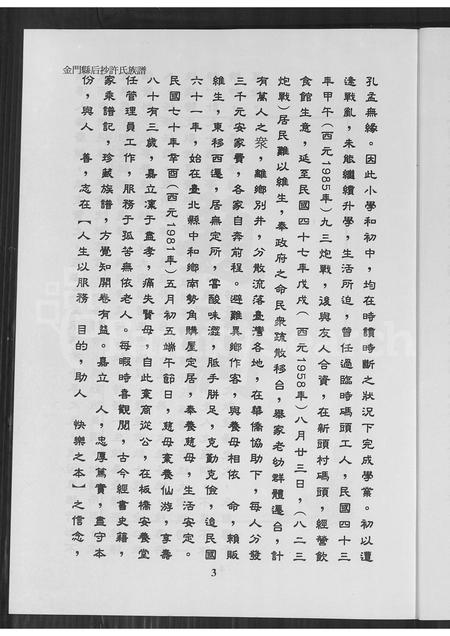 金門縣后抄許氏族譜
孔孟無緣。因此小學和初中，均在時讀時斷之狀況下完成學業。初以遭
逢戰亂，未能繼續升學，生活所迫，曾任過臨時碼頭工人，民國四十三
年甲午（西元1985年）九三炮戰，後與友人合資，在新頭村碼頭，經營飲
食館生意，延至民國四十七年戊戌（西元1958年）八月廿三日，（八二三
炮戰）居民難以維生，奉政府之命民眾疏散移台，舉家老幼群體遷台，計
有萬人之眾，離鄉別井，分散流落臺灣各地，在華僑協助下，每人分發
三千元安家費，各家自奔前程。避難異鄉作客，與養母相依　命，賴販
維生，東移西遷，居無定所，嘗酸味澀，胝手胼足，克勤克儉，迨民國
六十一年，始在臺北縣中和鄉南勢角購屋定居，奉養慈母，生活安定。
民國七十年辛酉（西元1981年）五月初五端午節日，慈母棄養仙游，享壽
八十有三歲，嘉立凜于盡孝，痛失賢母，自此棄商從公，在板橋安養堂
任管理員工作，服務于孤苦無依老人，每暇時喜觀閱，古今經書史籍，
家乘譜記，珍藏族譜，方覺知開卷有益。嘉立　人，忠厚篤實，盡守本
份，與人　善，志在【人生以服務　目的，助人　快樂之本】之信念，
3